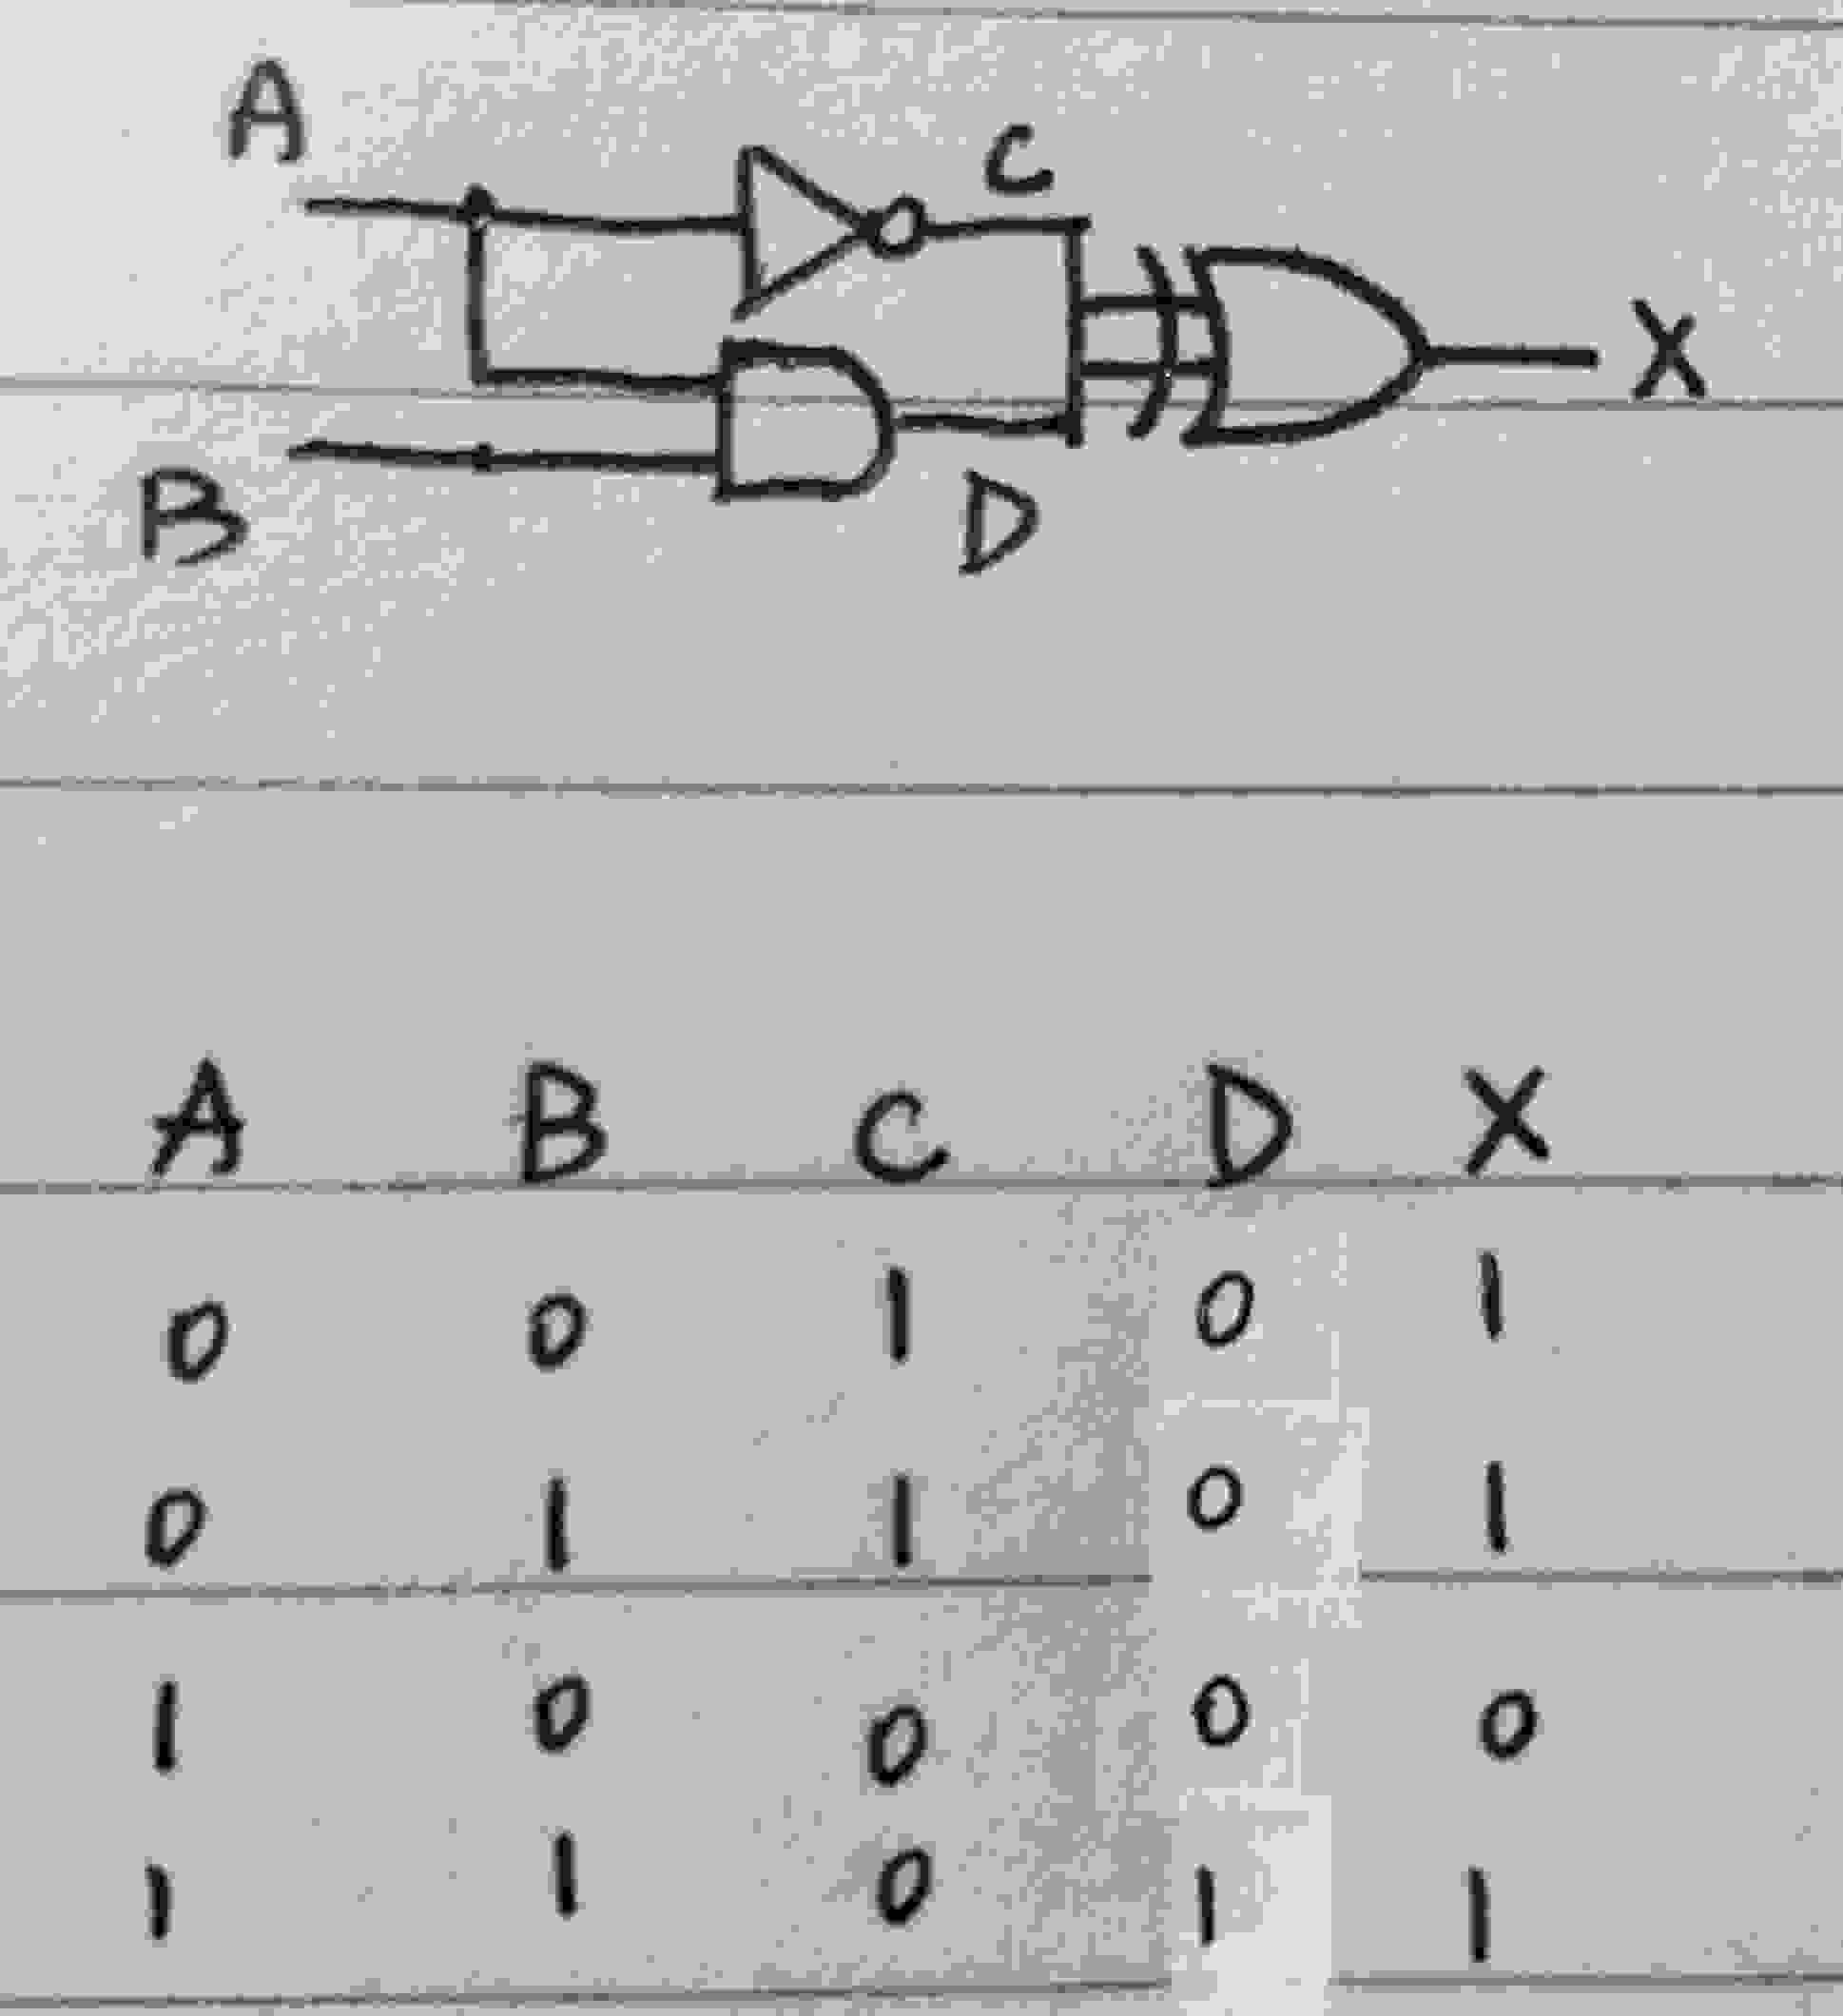 A
C
X
B
D
A B C D X
0 0 1 0 1
0 1 1 0 1
1 0 0 0 0
1 1 0 1 1